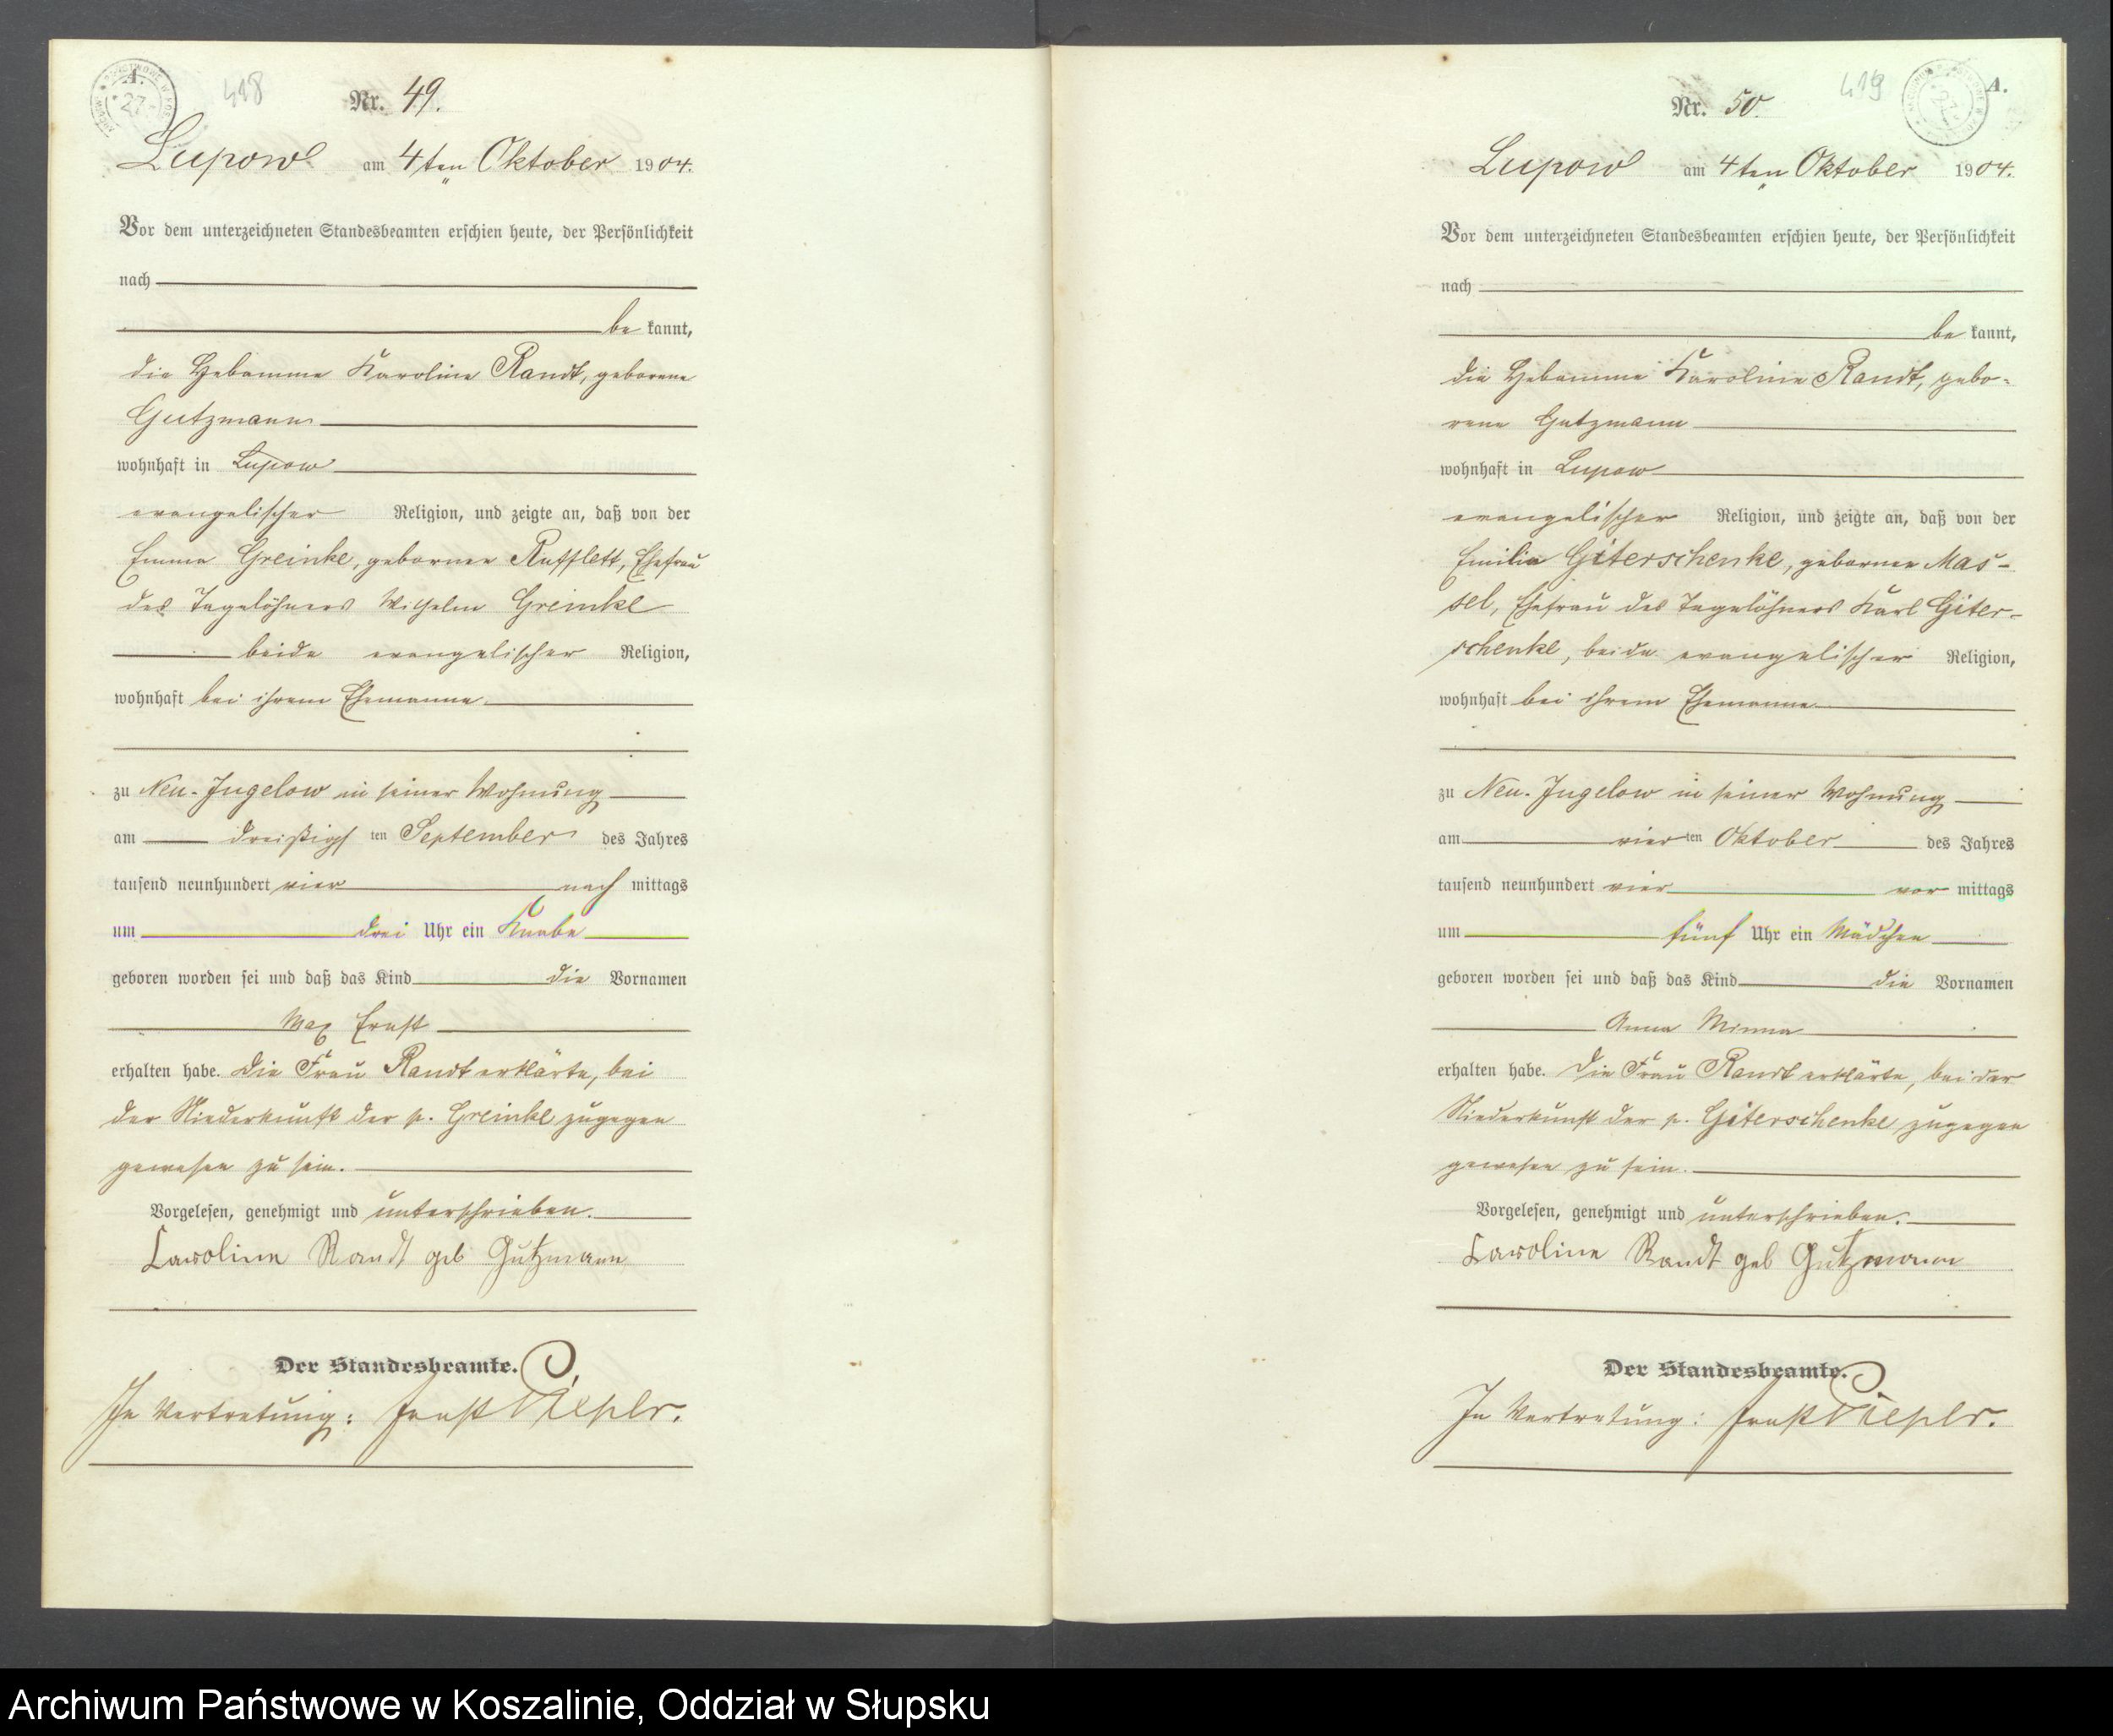 A.
418
Nr. 49.
Lupow am 4ten Oktober 1904.
Vor dem unterzeichneten Standesbeamten erschien heute, der Persönlichkeit
nach
be kannt,
die Hebamme Karoline Randt, geborene
Gutzmann
wohnhaft in Lupow
evangelischer Religion, und zeigte an, daß von der
Emma Greinke, geborenen Ehefrau
des Tagelöhners Wilhelm Greinke
beide evangelischer Religion,
wohnhaft bei ihrem Ehemanne
zu Neu-Jugelow in seiner Wohnung
am dreißigs ten September des Jahres
tausend neunhundert vier nach mittags
um drei Uhr ein Knabe
geboren worden sei und daß das Kind die Vornamen
Max Ernst
erhalten habe. Die Frau Randt erklärte, bei
der Niederkunft der p. Greinke zugegen
gewesen zu sein.
Vorgelesen, genehmigt und unterschrieben.
Caroline Randt geb Gutzmann
Der Standesbeamte.
In Vertretung: Ernst
419
A.
Nr. 50.
Lupow am 4ten Oktober 1904.
Vor dem unterzeichneten Standesbeamten erschien heute, der Persönlichkeit
nach
be kannt,
die Hebamme Karoline Randt, gebo-
rene Gutzmann
wohnhaft in Lupow
evangelischer Religion, und zeigte an, daß von der
Emilie Giterschenke, geborenen Mas-
sel, Ehefrau des Tagelöhners Karl Giter-
schenke, beide evangelischer Religion,
wohnhaft bei ihrem Ehemanne
zu Neu-Jugelow in seiner Wohnung
am vier ten Oktober des Jahres
tausend neunhundert vier vor mittags
um fünf Uhr ein Mädchen
geboren worden sei und daß das Kind die Vornamen
Anna Minna
erhalten habe. Die Frau Randt erklärte, bei der
Niederkunft der p. Giterschenke zugegen
gewesen zu sein.
Vorgelesen, genehmigt und unterschrieben.
Caroline Randt geb Gutzmann
Der Standesbeamte.
In Vertretung: Ernst
Archiwum Państwowe w Koszalinie, Oddział w Słupsku